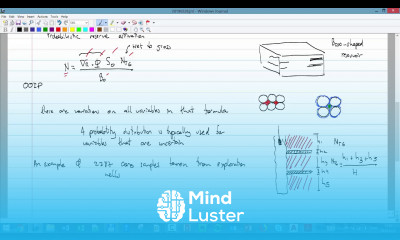 Probabilistic reserve estimation
Net to gross
N = VB . φ So NTG
Bo
OOIP
Box-shaped
reservoir
There are variations on all variables in that formula
A probability distribution is typically used for
variables that are uncertain
An example of core samples taken from exploration
wells
h1
h2
h3
h4
h5
NTG
h1 + h3 + h5
H
Mind
Luster